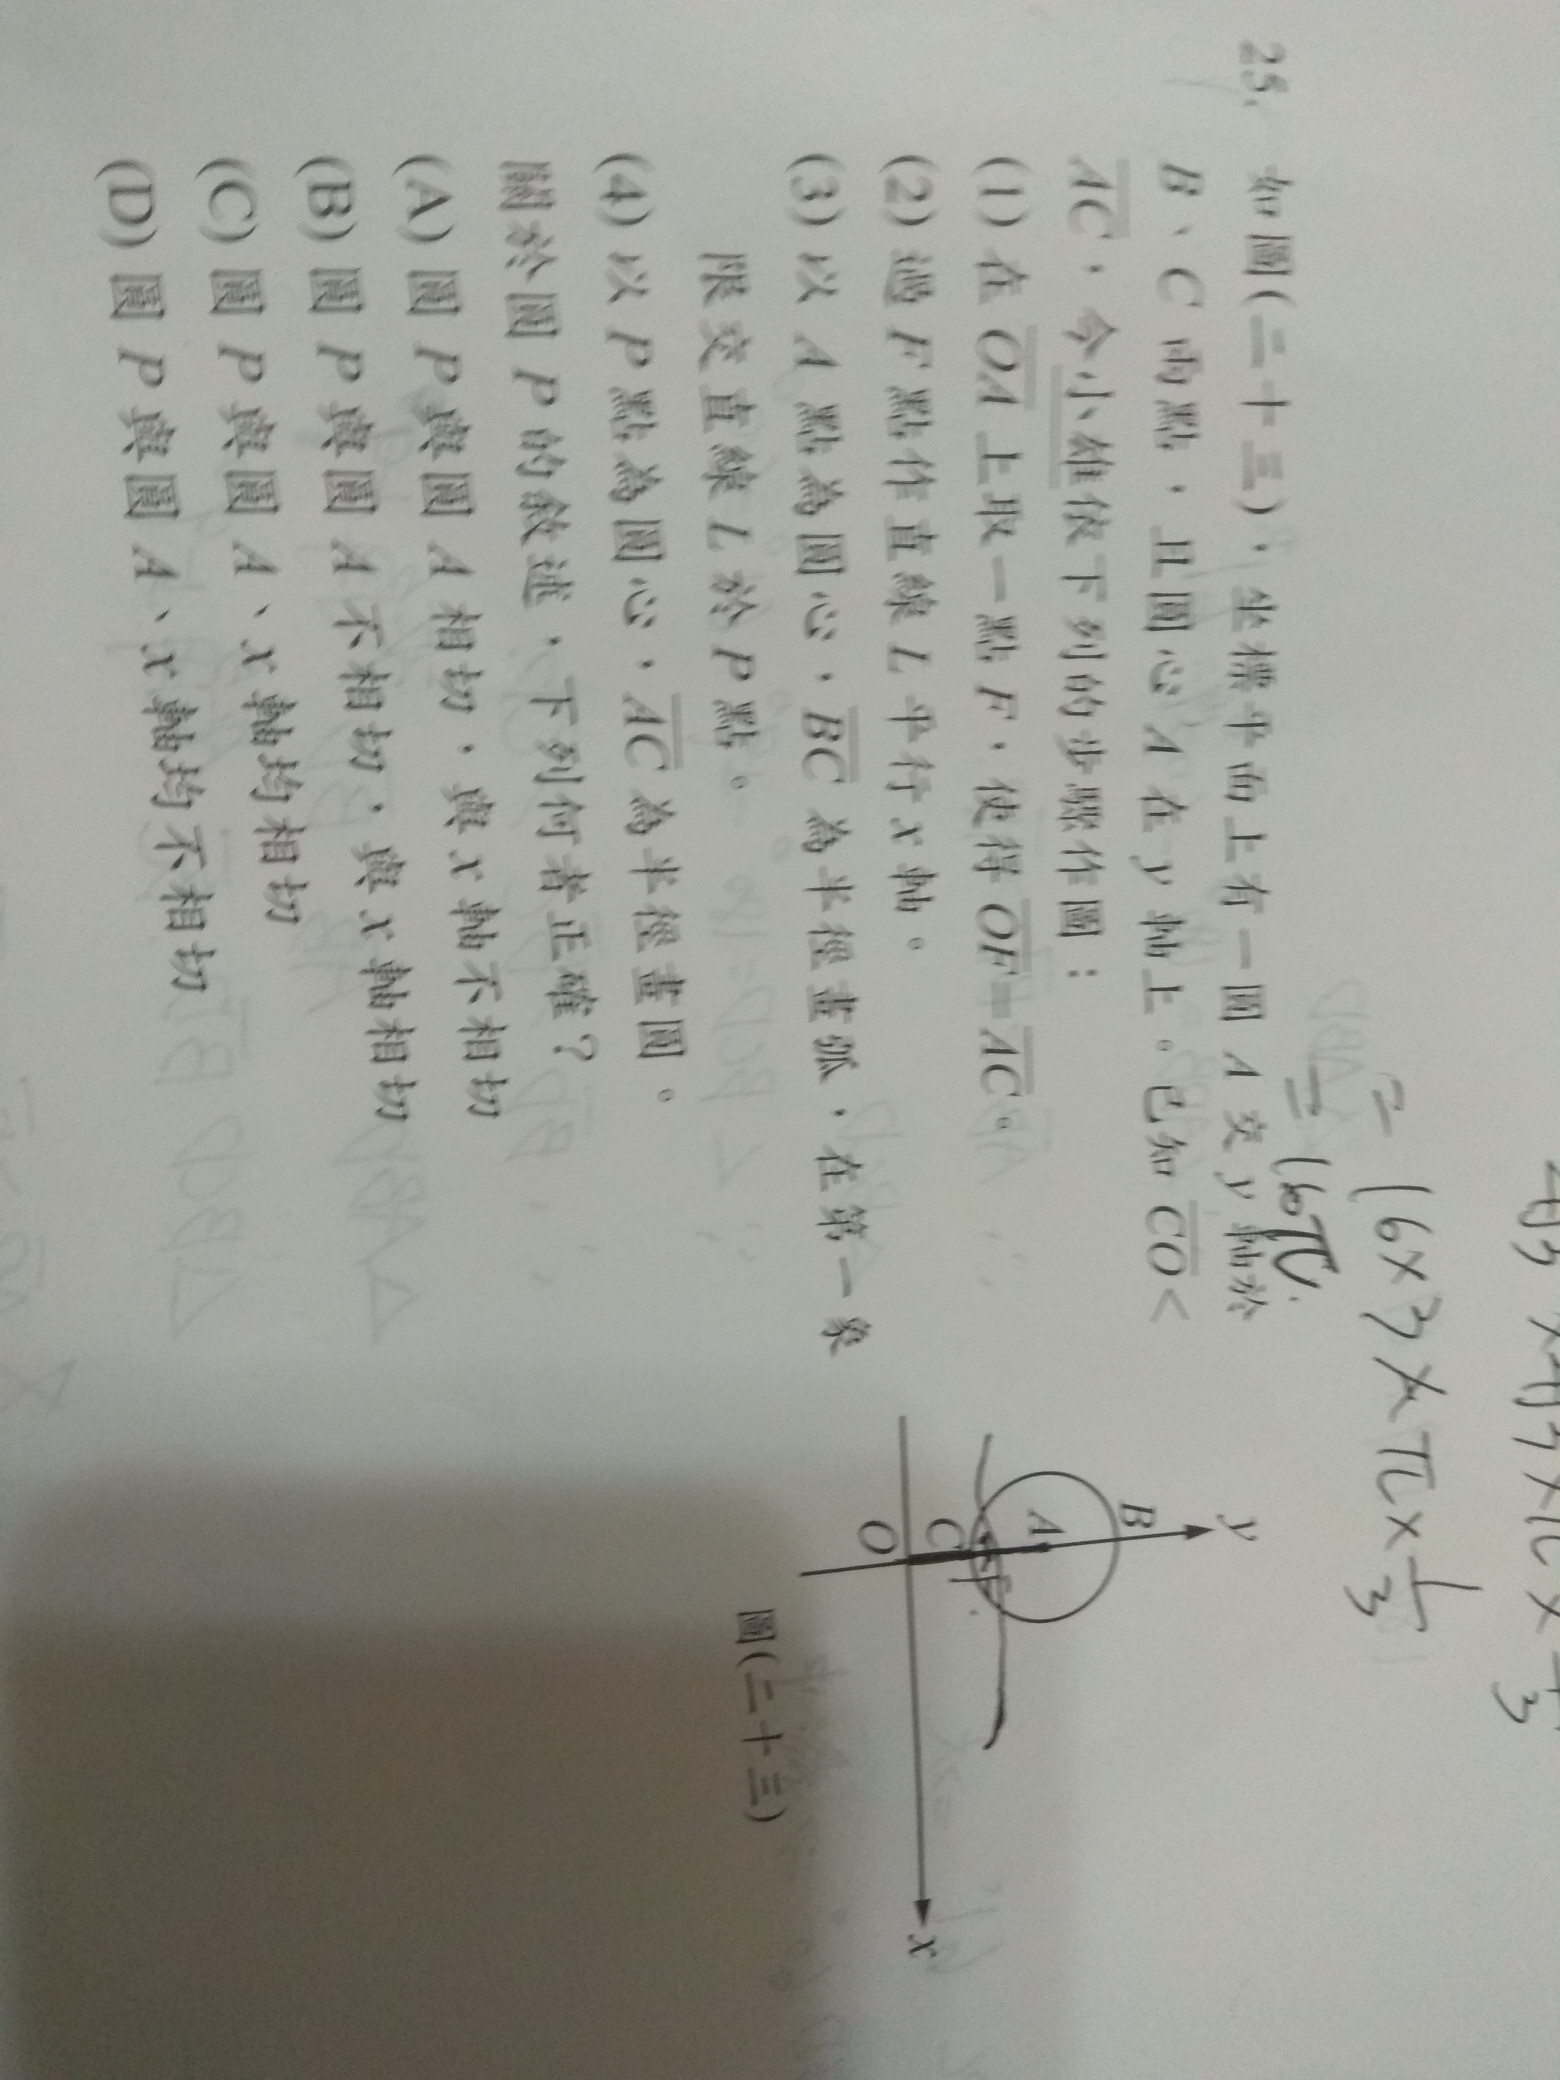 25. 如圖(二十三)，坐標平面上有一圓 A 交 y 軸於
B、C 兩點，且圓心 A 在 y 軸上。已知 CO <
AC，今小雄依下列的步驟作圖：
(1) 在 OA 上取一點 F，使得 OF = AC。
(2) 過 F 點作直線 L 平行 x 軸。
(3) 以 A 點為圓心，BC 為半徑畫弧，在第一象
限交直線 L 於 P 點。
(4) 以 P 點為圓心，AC 為半徑畫圓。
關於圓 P 的敘述，下列何者正確？
(A) 圓 P 與圓 A 相切，與 x 軸不相切
(B) 圓 P 與圓 A 不相切，與 x 軸相切
(C) 圓 P 與圓 A、x 軸均相切
(D) 圓 P 與圓 A、x 軸均不相切
= 16×3×π×1/3
= 16π.
y
B
A
C
F
O
x
圖(二十三)